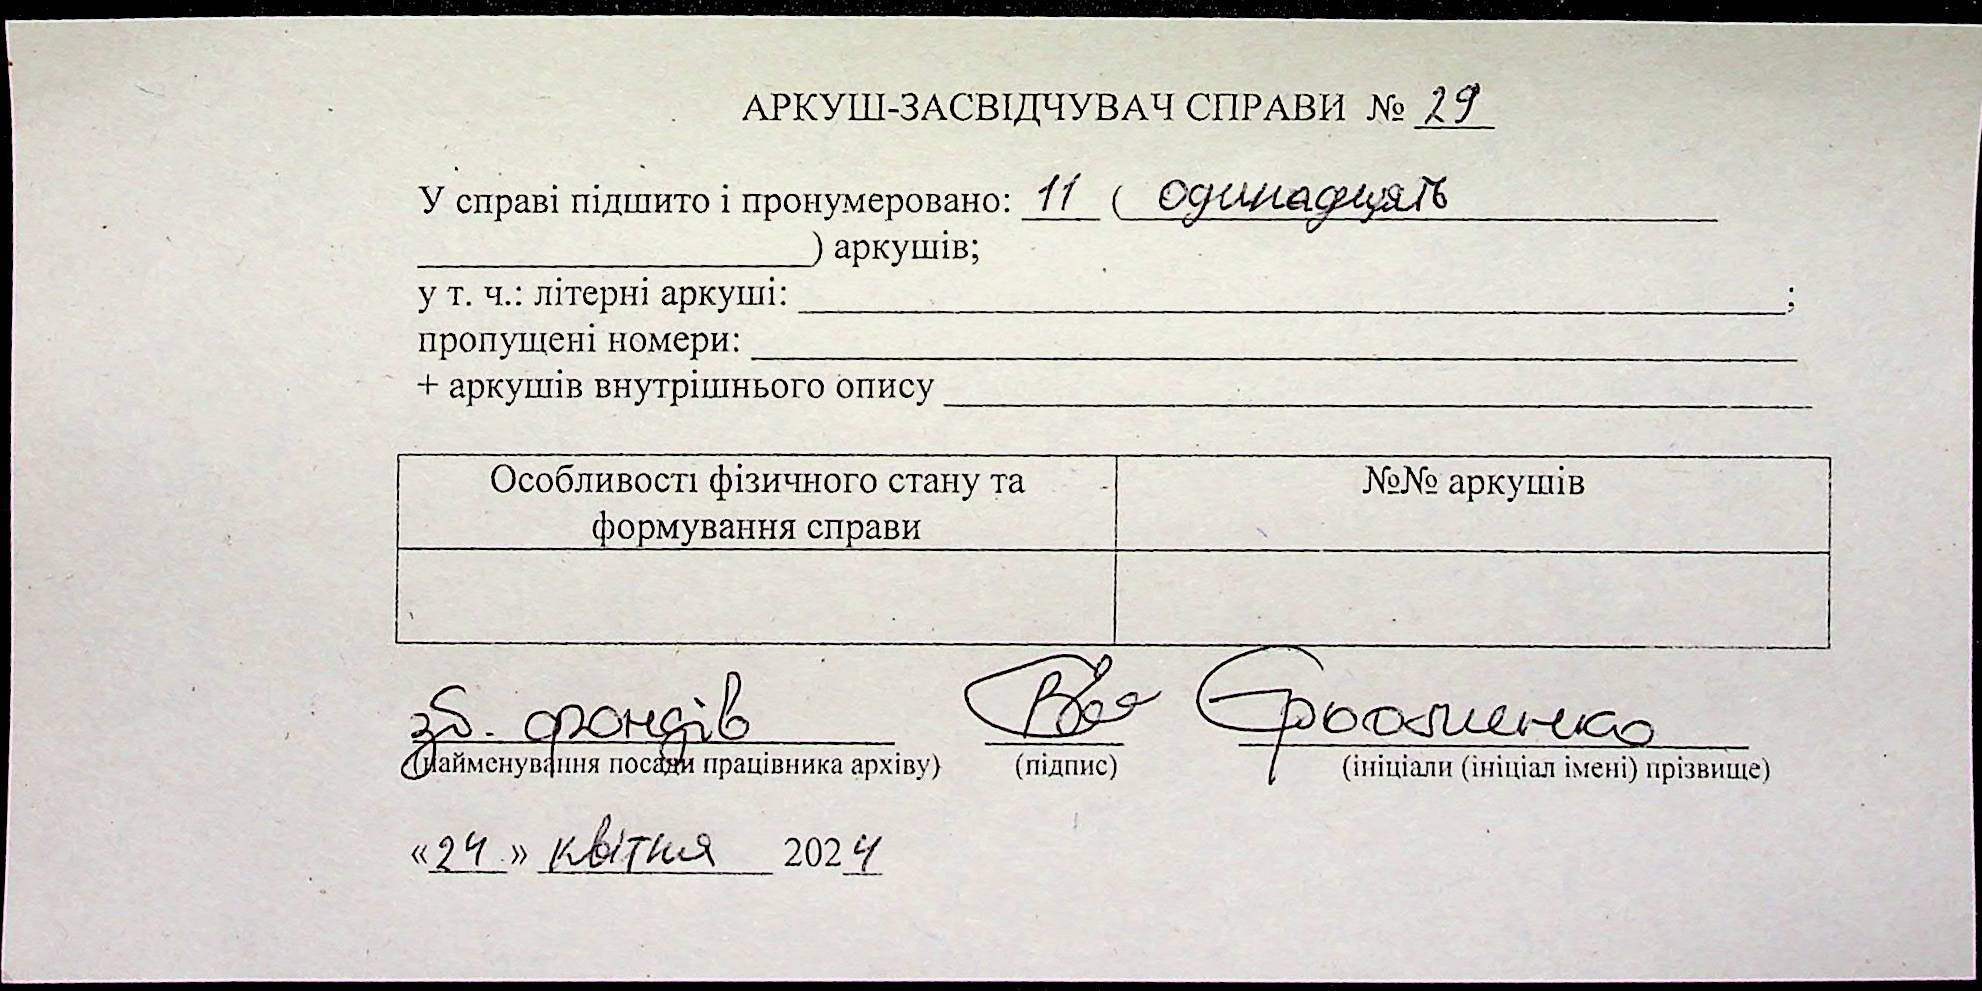 АРКУШ-ЗАСВІДЧУВАЧ СПРАВИ № 29
У справі підшито і пронумеровано: 11 ( одинадцять
) аркушів;
у т. ч.: літерні аркуші: ;
пропущені номери:
+ аркушів внутрішнього опису
Особливості фізичного стану та формування справи
№№ аркушів
зб. фондів
(найменування посади працівника архіву) (підпис) (ініціали (ініціал імені) прізвище)
«24» квітня 2024